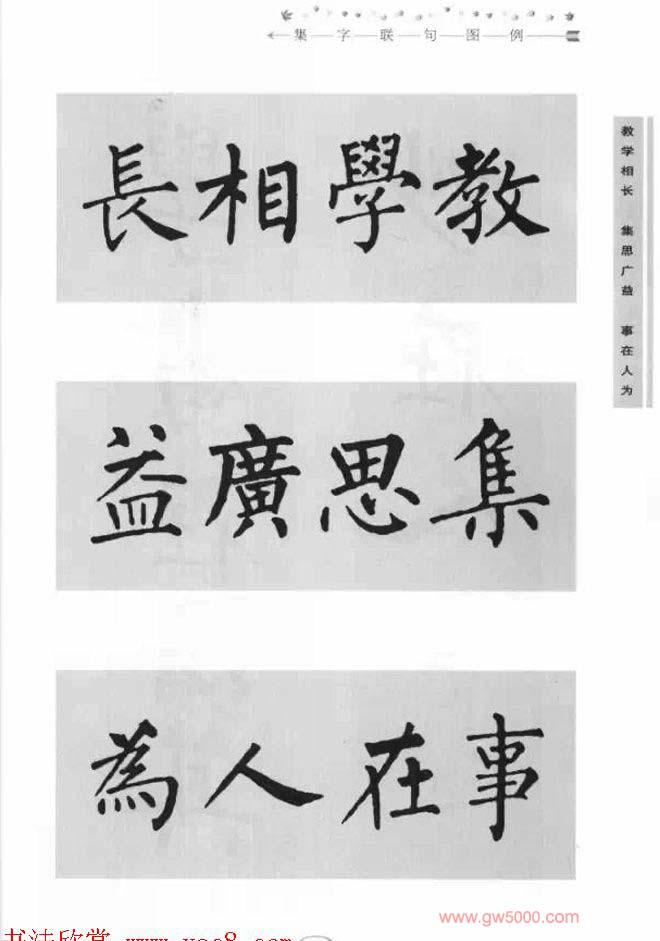 集字联句图例
教学相长 集思广益 事在人为
教學相長
集思廣益
事在人為
www.gw5000.com
书法欣赏 www.